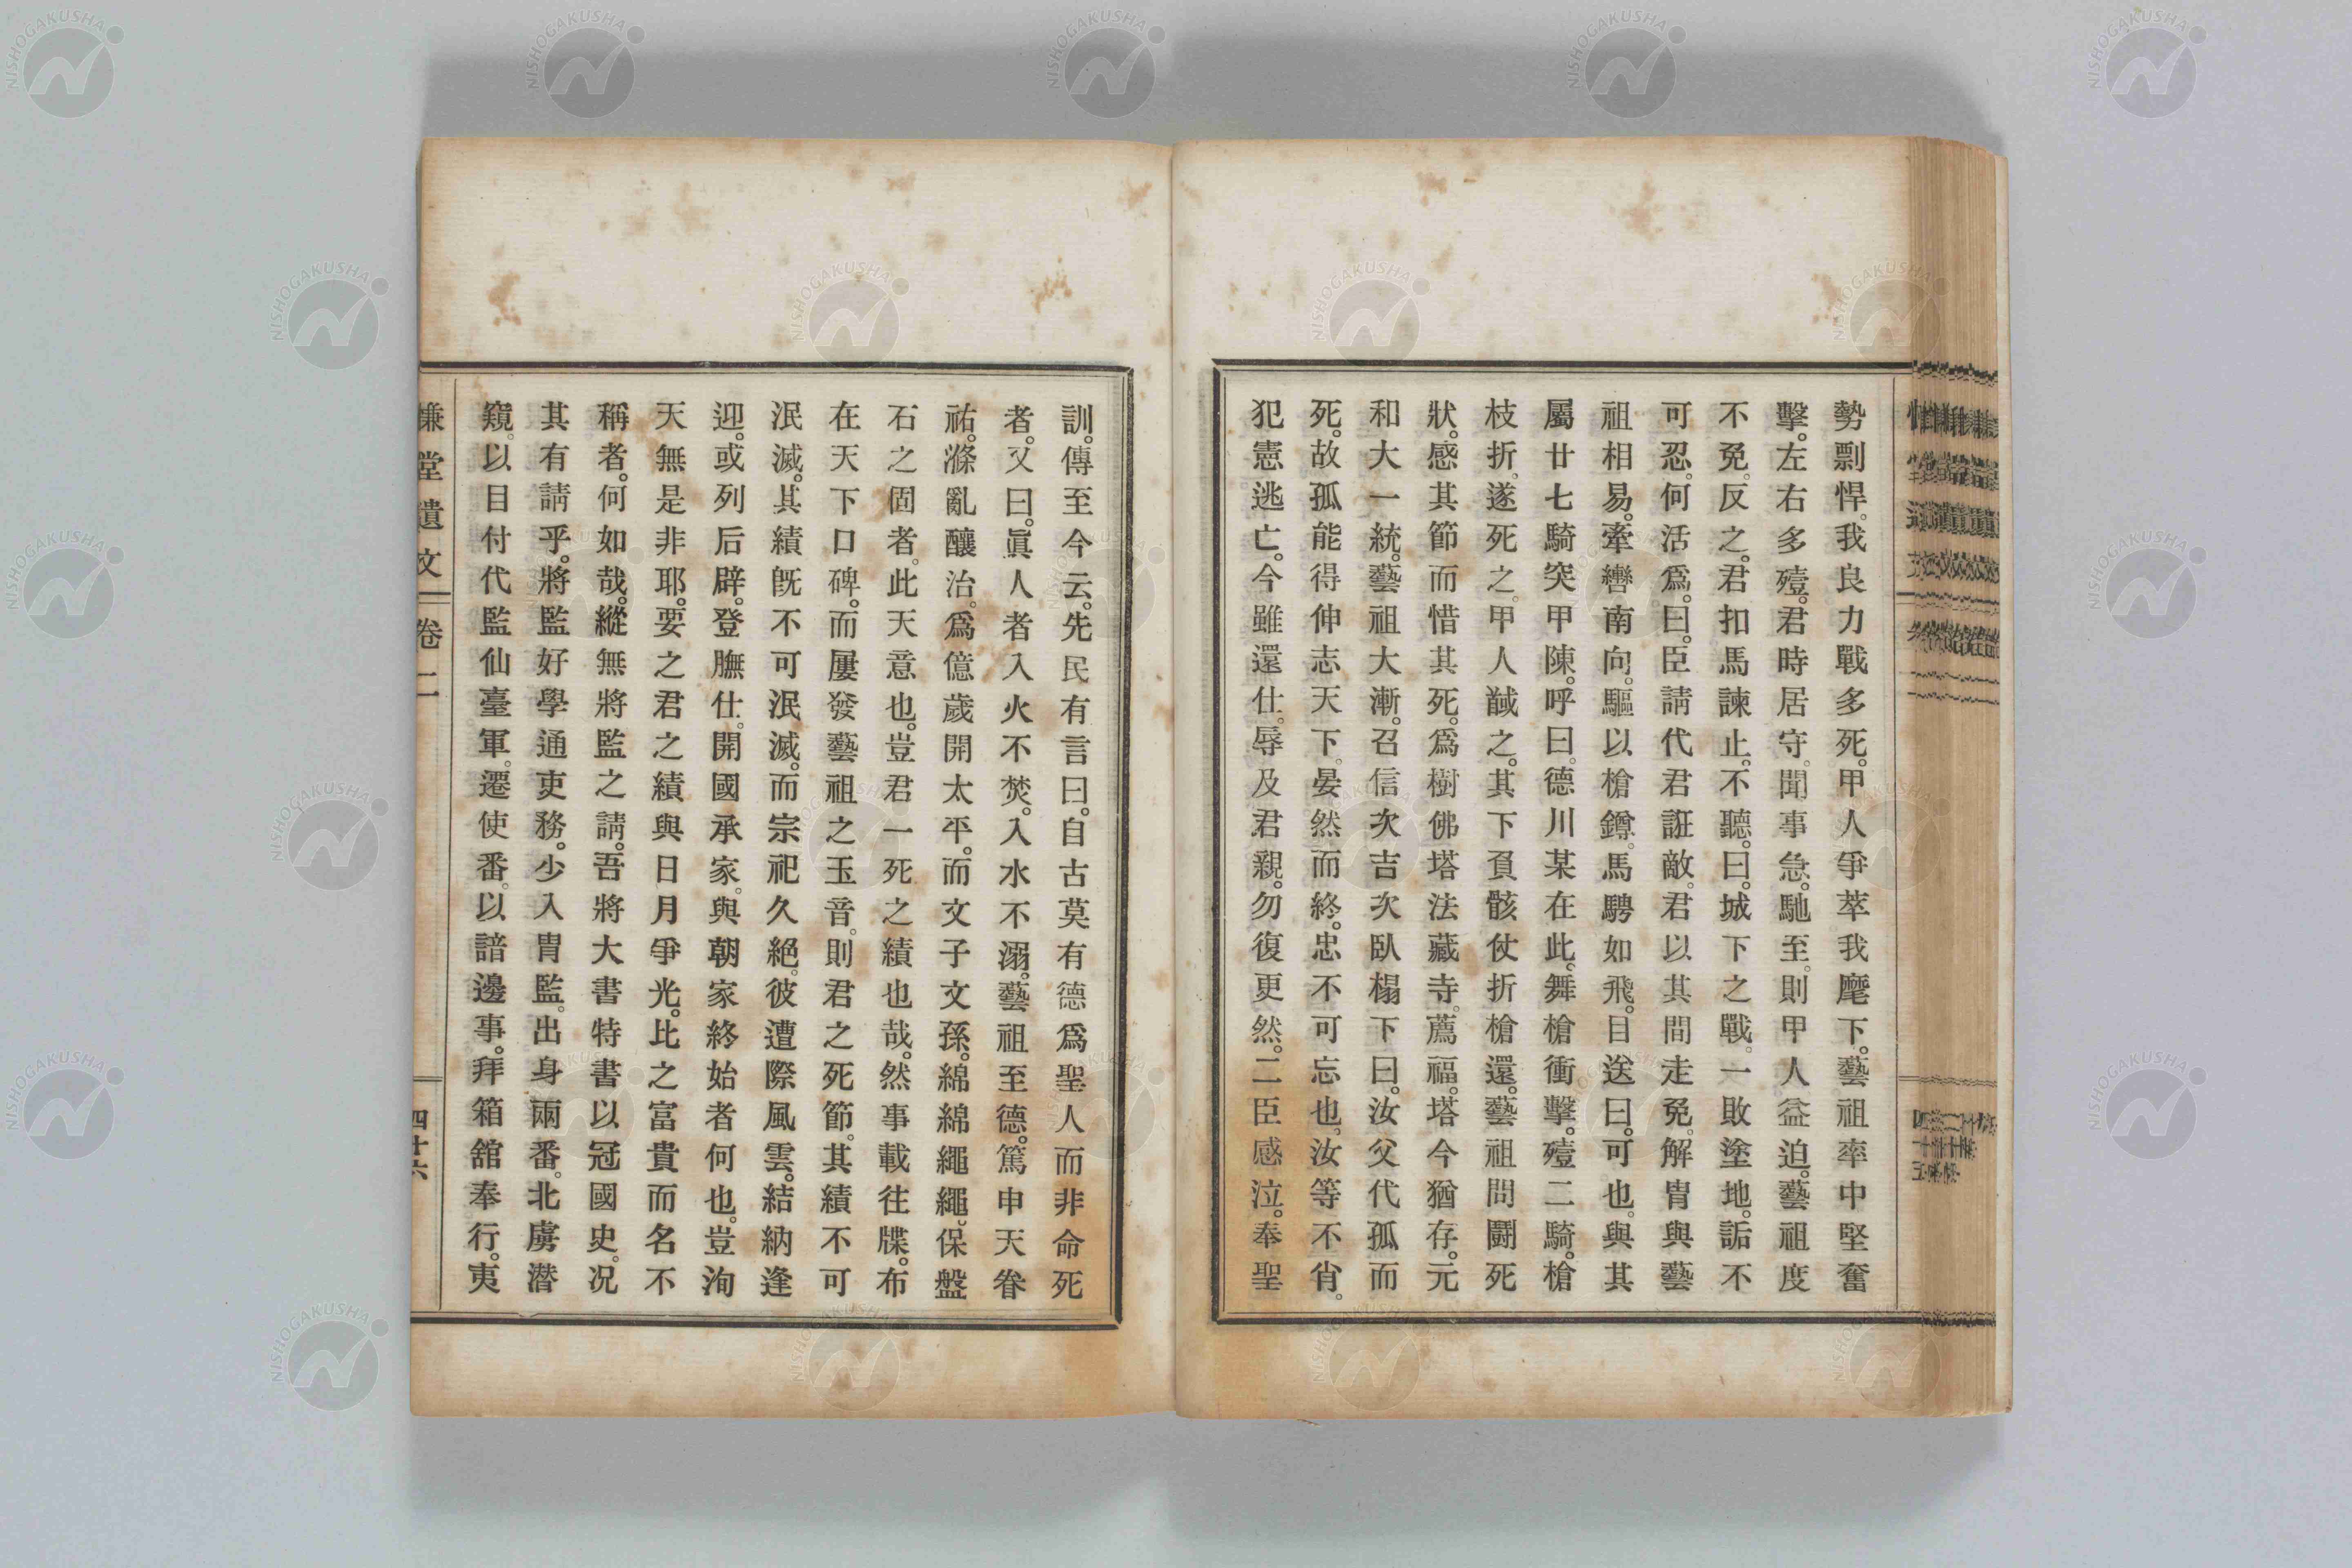 勢剽悍。我良力戰多死。甲人爭萃我麾下。藝祖率中堅奮
擊。左右多殪。君時居守。聞事急。馳至。則甲人益迫。藝祖度
不免。反之。君扣馬諫止。不聽。曰。城下之戰。一敗塗地。詬不
可忍。何活爲。曰。臣請代君誑敵。君以其間走免。解冑與藝
祖相易。牽轡南向。驅以槍鐏。馬騁如飛。目送曰。可也。與其
屬廿七騎突甲陳。呼曰。德川某在此。舞槍衝擊。殪二騎。槍
枝折。遂死之。甲人馘之。其下負骸仗折槍還。藝祖問鬪死
狀。感其節而惜其死。爲樹佛塔法藏寺。薦福。塔今猶存。元
和大一統。藝祖大漸。召信次吉次臥榻下曰。汝父代孤而
死。故孤能得伸志天下。晏然而終。忠不可忘也。汝等不肖。
犯憲逃亡。今雖還仕。辱及君親。勿復更然。二臣感泣。奉聖
訓。傳至今云。先民有言曰。自古莫有德爲聖人而非命死
者。又曰。眞人者入火不焚。入水不溺。藝祖至德。篤申天眷
祐。滌亂釀治。爲億歲開太平。而文子文孫。綿綿繩繩。保盤
石之固者。此天意也。豈君一死之績也哉。然事載往牒。布
在天下口碑。而屢發藝祖之玉音。則君之死節。其績不可
泯滅。其績旣不可泯滅。而宗祀久絕。彼遭際風雲。結納逢
迎。或列后辟。登膴仕。開國承家。與朝家終始者何也。豈洵
天無是非耶。要之君之績與日月爭光。比之富貴而名不
稱者。何如哉。縱無將監之請。吾將大書特書以冠國史。况
其有請乎。將監好學通吏務。少入冑監。出身兩番。北虜潛
窺。以目付代監仙臺軍。遷使番。以諳邊事。拜箱舘奉行。夷
慊堂遺文 卷二 四十六
NISHOGAKUSHA